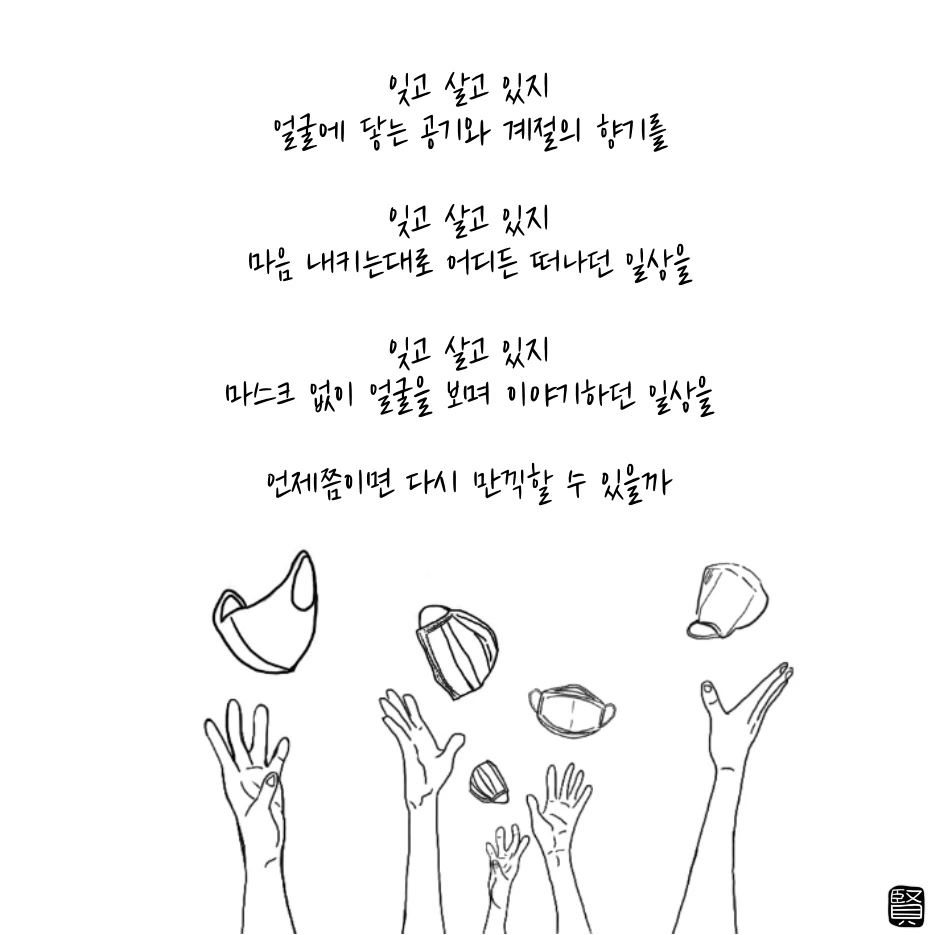 잊고 살고 있지
얼굴에 닿는 공기와 계절의 향기를
잊고 살고 있지
마음 내키는대로 어디든 떠나던 일상을
잊고 살고 있지
마스크 없이 얼굴을 보며 이야기하던 일상을
언제쯤이면 다시 만끽할 수 있을까
賢